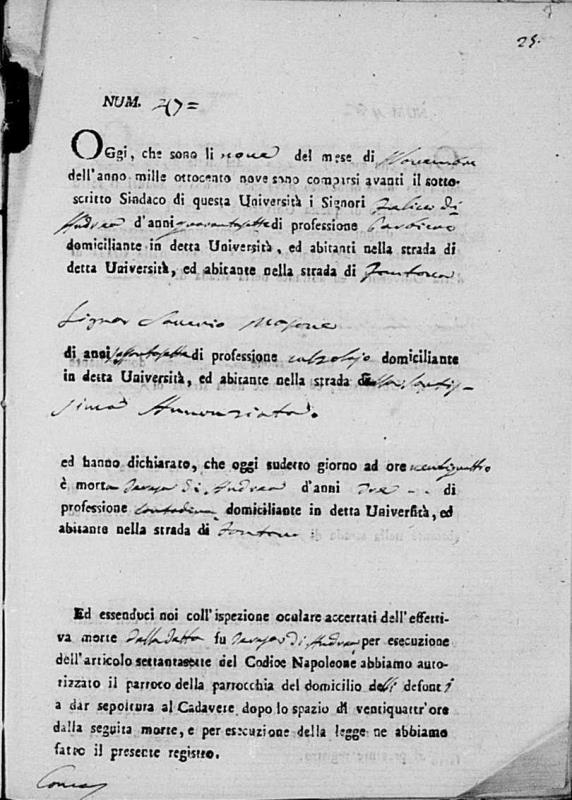 25.
NUM. 47=
OGgi, che sono li nove del mese di Novembre
dell'anno mille ottocento nove sono comparsi avanti il sotto-
scritto Sindaco di questa Università i Signori Felice di
Andrea d'anni quarantasette di professione
domiciliante in detta Università, ed abitanti nella strada di
detta Università, ed abitante nella strada di Fontana
Signor Saverio Masone
di anni di professione domiciliante
in detta Università, ed abitante nella strada della Santis-
sima Annunziata.
ed hanno dichiarato, che oggi sudetto giorno ad ore ventiquattro
è morta di Andrea d'anni tre -- di
professione contadina domiciliante in detta Università, ed
abitante nella strada di Fontana.
Ed essenduci noi coll'ispezione oculare accertati dell'effetti-
va morte della detta fu di Andrea per esecuzione
dell'articolo settantasette del Codice Napoleone abbiamo auto-
rizzato il parroco della parrocchia del domicilio delli defonti
a dar sepoltura al Cadavere dopo lo spazio di ventiquattr'ore
dalla seguita morte, e per esecuzione della legge ne abbiamo
fatto il presente registro.